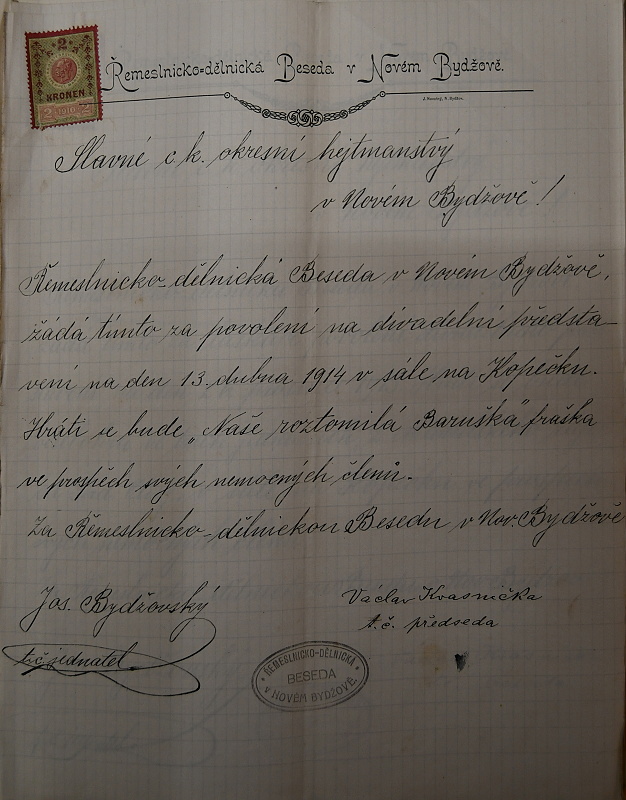 2
KRONEN
2 1910 2
Řemeslnicko-dělnická Beseda v Novém Bydžově.
Slavné c. k. okresní hejtmanstvý
v Novém Bydžově!
Řemeslnicko-dělnická Beseda v Novém Bydžově,
žádá tímto za povolení na divadelní předsta-
vení na den 13. dubna 1914 v sále na Kopečku.
Hráti se bude „Naše roztomilá Baruška" fraška
ve prospěch svých nemocných členů.
Za Řemeslnicko-dělnickou Besedu v Nov. Bydžově
Jos. Bydžovský
t. č. jednatel
Václav Kvasnička
t. č. předseda
ŘEMESLNICKO-DĚLNICKÁ
BESEDA
V NOVÉM BYDŽOVĚ.